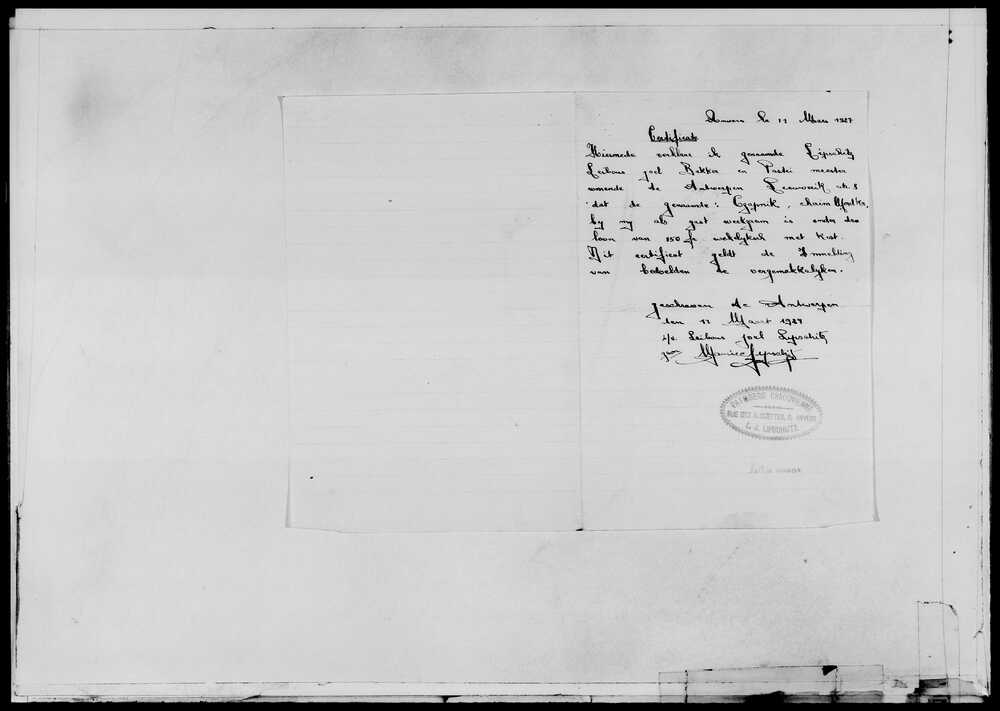 Anvers le 11 Mars 1927
Certificate
Hiermede verklaar ik genaamde Lipschitz
Leibous joel Bakker en Pastei meester
wonende te Antwerpen Leeuwerik str. 8
dat de genaamde: Czapnik, chaim
by my als gast werkzaam is onder den
loon van 150 fr. wekelijksch met kost.
Dit certificat geldt de Inmelding
van betrokken te vergemakkelyken.
geschreven te Antwerpen
den 11 Maart 1927
Leibous joel Lipschitz
Maurice Lipschitz
PATISSERIE CRACOVIENNE
RUE DES ALOUETTES, 8, ANVERS
L. J. LIPSCHUTZ